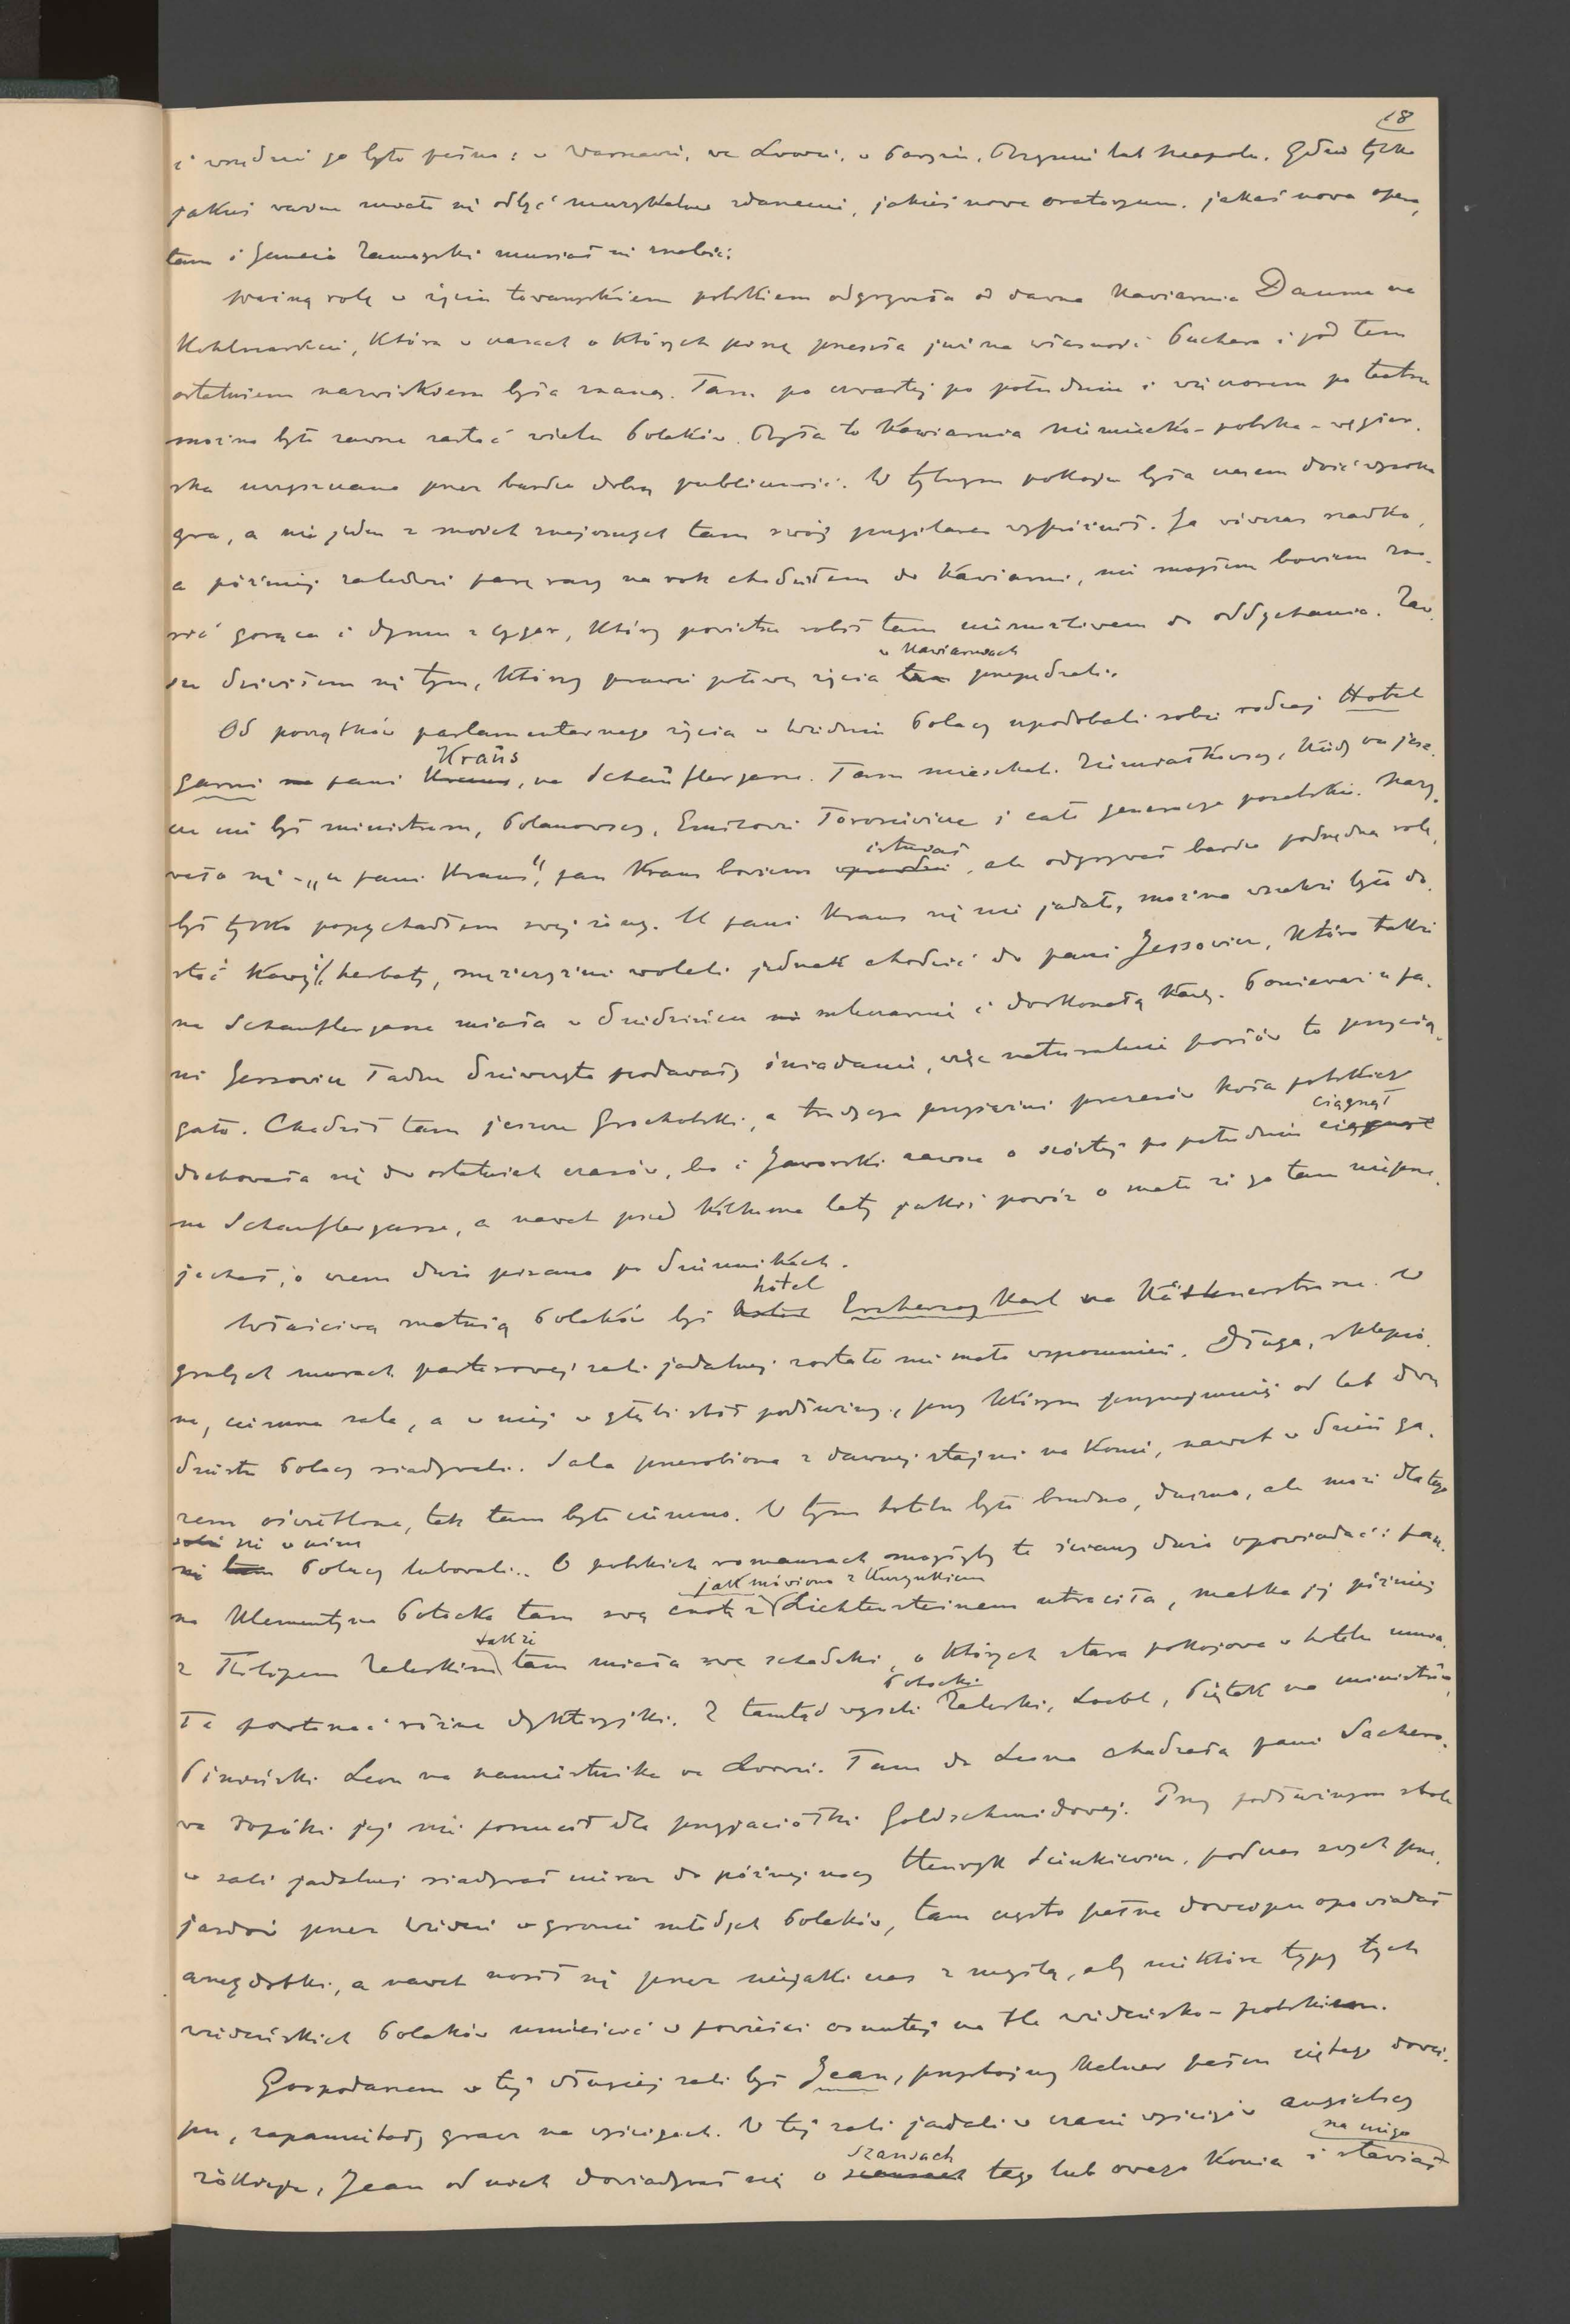 18
i wszędzie go było pełno: w Warszawie, we Lwowie, w Paryżu, Rzymie lub Neapolu. Gdzie tylko
jakieś ważne miało się odbyć muzykalne zdarzenie, jakieś nowe oratoryum, jakaś nowa opera,
tam i Zamoyski musiał się znaleźć.
Ważną rolę w życiu towarzyskiem polskiem odgrywała od dawna kawiarnia Dauma na
Kohlmarkcie, która w czasach o których piszę przeszła już na własność Puchera i pod tem
ostatniem nazwiskiem była znaną. Tam po czwartej po południu i wieczorem po teatrze
można było zawsze zastać wielu Polaków. Była to kawiarnia niemiecko-polsko-węgier-
ska uczęszczana przez bardzo dobrą publiczność. W tylnym pokoju była czasem dość wysoka
gra, a nie jeden z moich znajomych tam swój pugilares wypróżnił. Ja wówczas rzadko,
a później zaledwie parę razy na rok chodziłem do kawiarni, nie mogłem bowiem zno-
sić gorąca i dymu z cygar, który powietrze robił tam niemożliwem do oddychania. Zaw-
w kawiarniach
sze dziwiłem się tym, którzy prawie połowę życia tam przepędzali.
Od początków parlamentarnego życia w Wiedniu Polacy upodobali sobie rodzaj Hotel
Kraus
garni na pani Kraus, na Schauflergasse. Tam mieszkał Ziemiałkowski, kiedy on jesz-
cze nie był ministrem, Polanowscy, Emilowie Torosiewicze i cała generacya poselska. Nazy-
istniał
wało się - „u pani Kraus", pan Kraus bowiem wprawdzie, ale odgrywał bardzo podrzędną rolę,
był tylko popychadłem swej żony. U pani Kraus się nie jadało, można wszakże było do-
stać kawy i herbaty, mężczyźni woleli jednak chodzić do pani Jessowicz, która także
na Schauflergasse miała w dziedzińcu mleczarnię i doskonałą kawę. Ponieważ u pa-
ni Jessowicz ładne dziewczęta podawały śniadanie, więc naturalnie posłów to przycią-
gało. Chodził tam jeszcze Grocholski, a tradycya przyjaźni prezesów Koła polskiego
ciągnął
dochowała się do ostatnich czasów, bo i Jaworski zawsze o szóstej po południu ciągnął
na Schauflergasse, a nawet przed kilkoma laty jakiś powóz o mało że go tam nie prze-
jechał, o czem dużo pisano po dziennikach.
hotel
Właściwą matnią Polaków był hotel Erzherzog Karl na Kärthnerstrasse. W
grubych murach parterowej sali jadalnej zostało nie mało wspomnień. Długa, sklepio-
na, ciemna sala, a w niej w głębi stół podłużny, przy którym przynajmniej od lat dwu-
dziestu Polacy siadywali. Sala przerobiona z dawnej stajni na konie, nawet w dzień ga-
zem oświetlona, tak tam było ciemno. W tym hotelu było brudno, duszno, ale może dlatego
się w nim
się tam Polacy lubowali.. O polskich romansach mogłyby te ściany dużo opowiadać: pan-
jak mówiono z Kurzynkiem
na Klementyna Potocka tam swą cnotę z Lichtensteinem utraciła, matka jej później
także
z Filipem Zaleskim tam miała swe schadzki, o których stara pokojowa w hotelu umia-
Potocki
ła powtarzać różne dykteryjki. Z tamtąd wyszli Zaleski, Loebl, Piętak na ministrów,
Piniński Leon na namiestnika we Lwowie. Tam do Leona chodziła pani Sachero-
wa dopóki jej nie porzucił dla przyjaciółki Goldschmidowej. Przy podłużnym stole
w sali jadalnej siadywał nieraz do późnej nocy Henryk Sienkiewicz, podczas swych prze-
jazdów przez Wiedeń w gronie młodych Polaków, tam często pełne dowcipu opowiadał
anegdotki, a nawet nosił się przez niejaki czas z myślą, aby niektóre typy tych
wiedeńskich Polaków umieścić w powieści osnutej na tle wiedeńsko-polskiem.
Gospodarzem w tej sali był Jean, przystojny kelner pełen ciętego dowci-
pu, zapamiętały gracz na wyścigach. W tej sali jadali w czasie wyścigów angielscy
szansach na niego
żokieje, Jean od nich dowiadywał się o szansach tego lub owego konia i stawiał